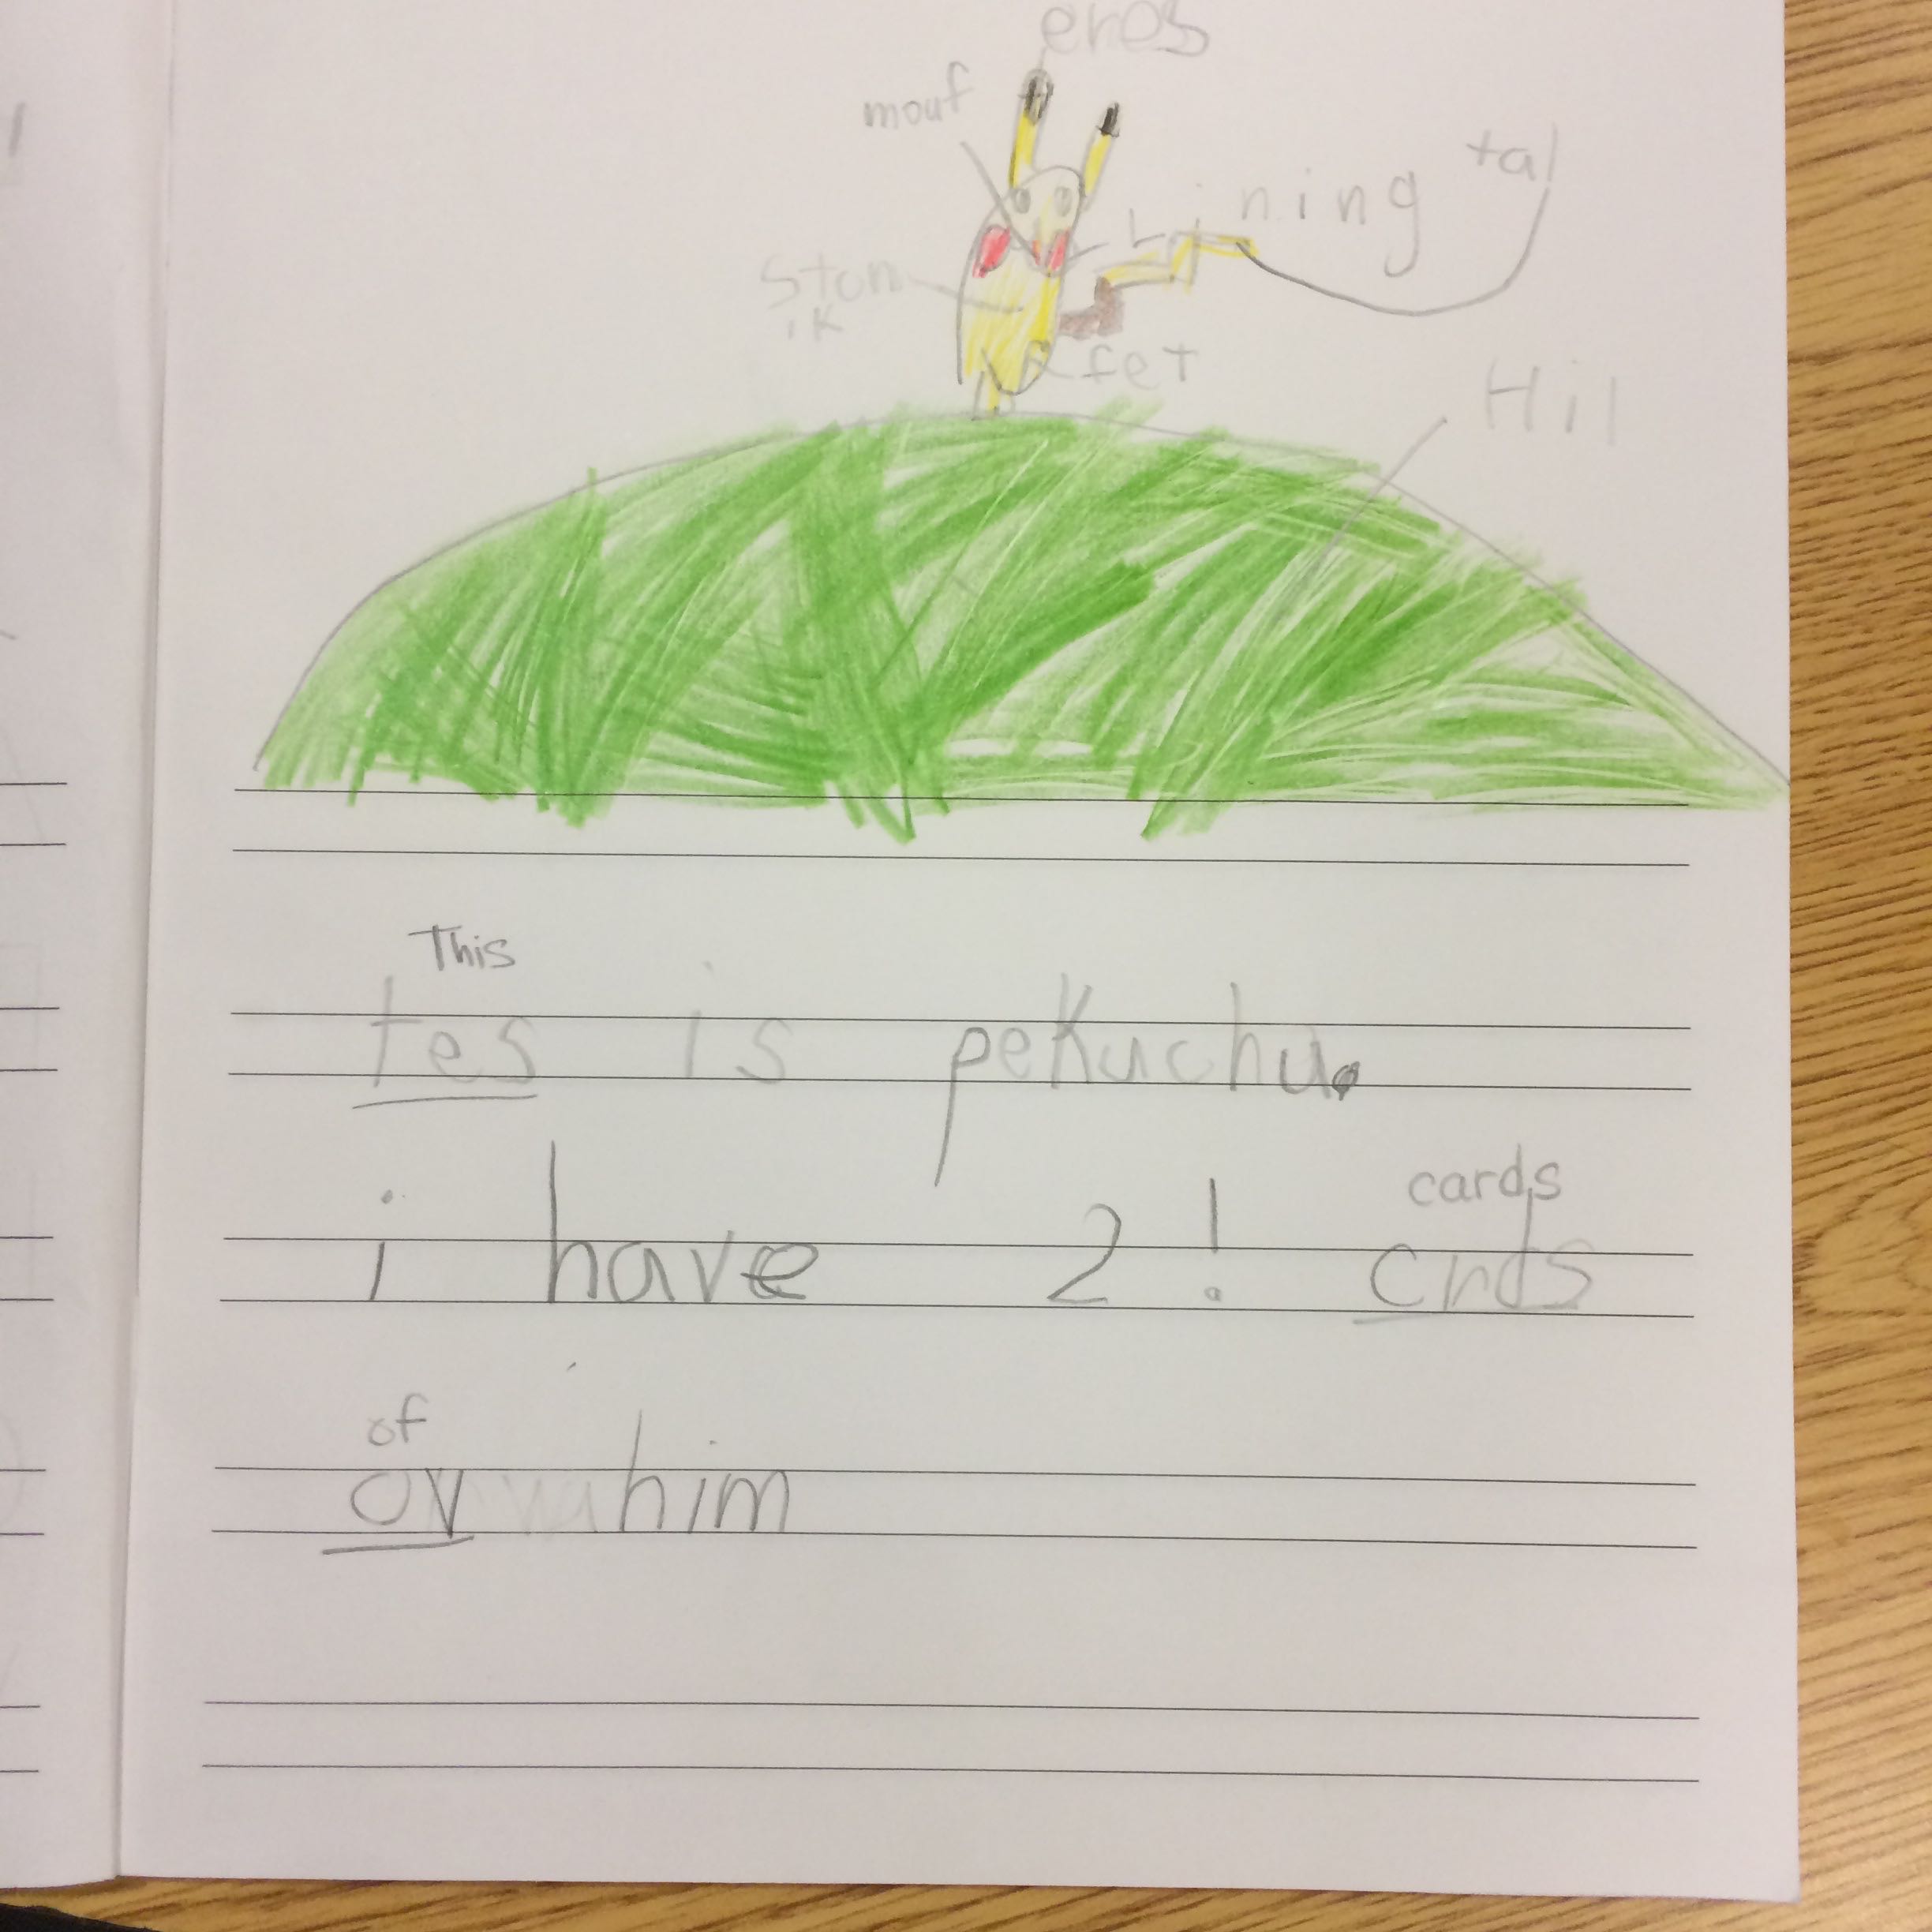 eros
mouf
tal
Lining
Stom
ik
fet
Hil
This
tes is pekuchu.
cards
i have 2! crds
of
ov him